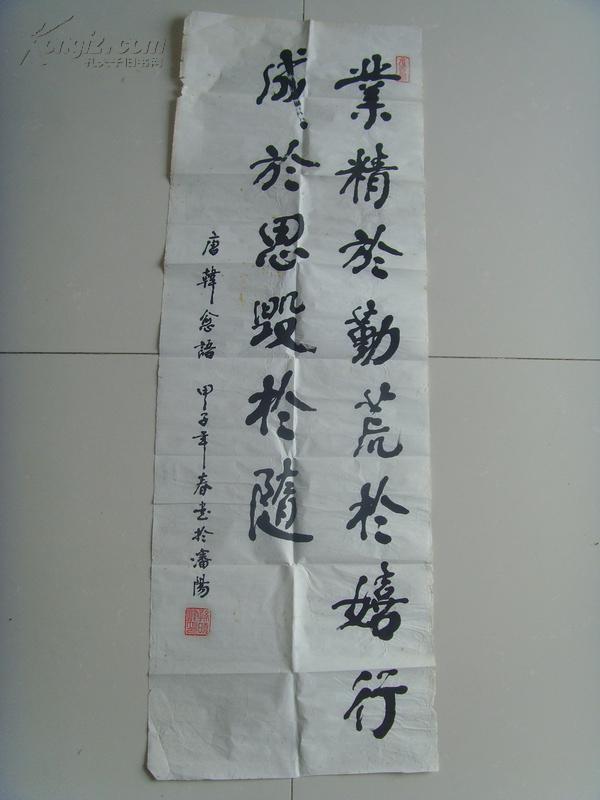 業精於勤荒於嬉行
成於思毀於隨
唐韓愈語 甲子年春書於瀋陽
Kongfz.com
孔夫子旧书网